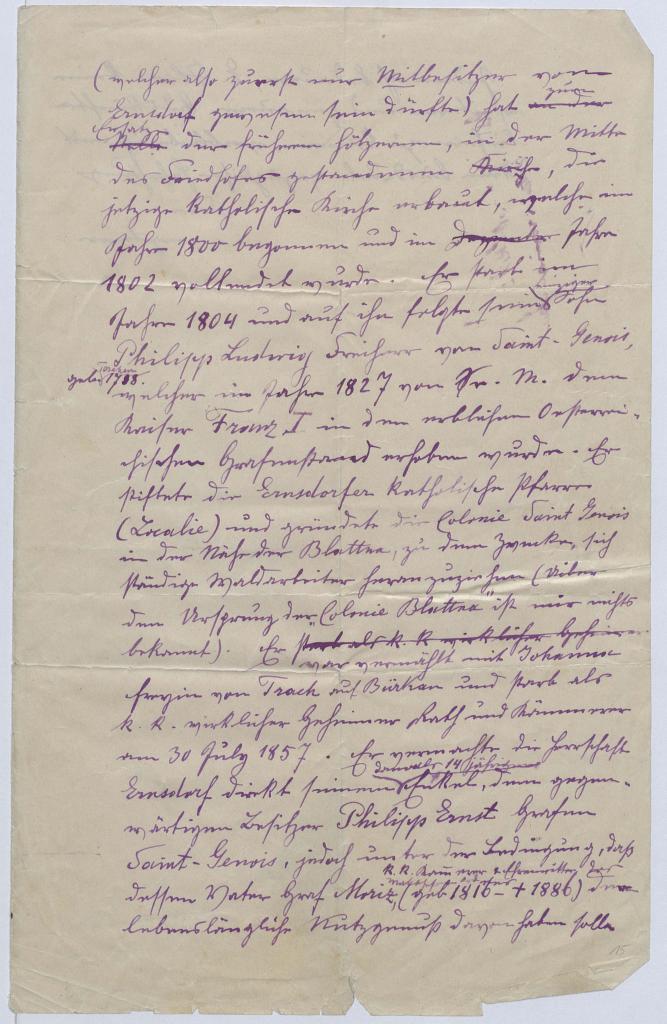 (welcher also zuerst nur Mitbesitzer von
zum
Ernsdorf gewesen sein dürfte) hat an der
Ersatz
Stelle der früheren hölzernen, in der Mitte
des Friedhofes gestandenen Kirche, die
jetzige katholische Kirche erbaut, welche im
Jahre 1800 begonnen und im Dezember Jahre
1802 vollendet wurde. Er starb im
einziger
Jahre 1804 und auf ihn folgte sein Sohn
Philipp Ludwig Freiherr von Saint-Genois,
geb. 1788.
welcher im Jahre 1827 von Sr. M. dem
Kaiser Franz I in den erblichen Oesterrei-
chischen Grafenstand erhoben wurde. Er
stiftete die Ernsdorfer katholische Pfarre
(Localie) und gründete die Colonie Saint Genois
in der Nähe der Blattna, zu dem Zwecke, sich
ständige Waldarbeiter heranzuziehen (Über
den Ursprung der "Colonie Blattna" ist mir nichts
bekannt). Er starb als k. k. wirklicher Geheimer
war vermählt mit Johanna
Freyin von Trach auf Birkau und starb als
k. k. wirklicher Geheimer Rath und Kämmerer
am 30 July 1857. Er vermachte die Herrschaft
damals 14 jährigen
Ernsdorf direkt seinem Enkel, dem gegen-
wärtigen Besitzer Philipp Ernst Grafen
Saint-Genois, jedoch unter der Bedingung, daß
k. k. Kämmerer & Ehrenritter des
dessen Vater Graf Moriz, (geb 1816 - + 1886) den
lebenslängliche Nutzgenuß davon haben solle
15